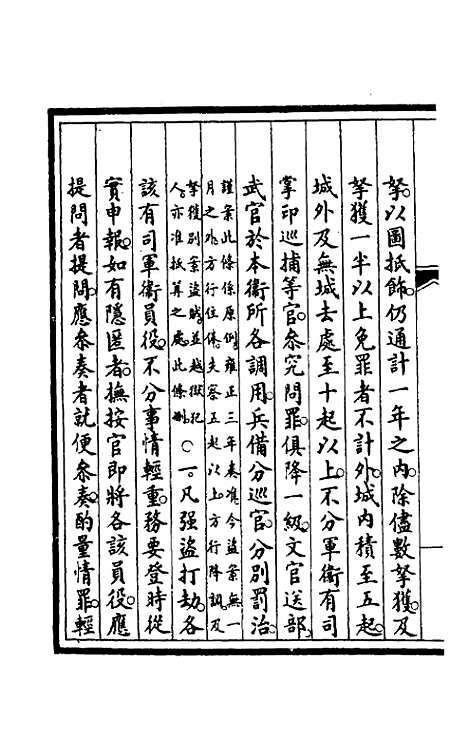 拏以圖抵飾仍通計一年之內除儘數拏獲及
拏獲一半以上免罪者不計外城內積至五起
城外及無城去處至十起以上不分軍衛有司
掌印巡捕等官叅究問罪俱降一級文官送部
武官於本衛所各調用兵備分巡官分別罰治
謹案此條係原例雍正三年奏准今盜案無一
月之外方行住俸失察五起以上方行降調及
拏獲別案盜賊並越獄犯
人亦准抵算之處此條刪
○一凡强盜打劫各
該有司軍衛員役不分事情輕重務要登時從
實申報如有隱匿者撫按官即將各該員役應
提問者提問應叅奏者就便叅奏酌量情罪輕